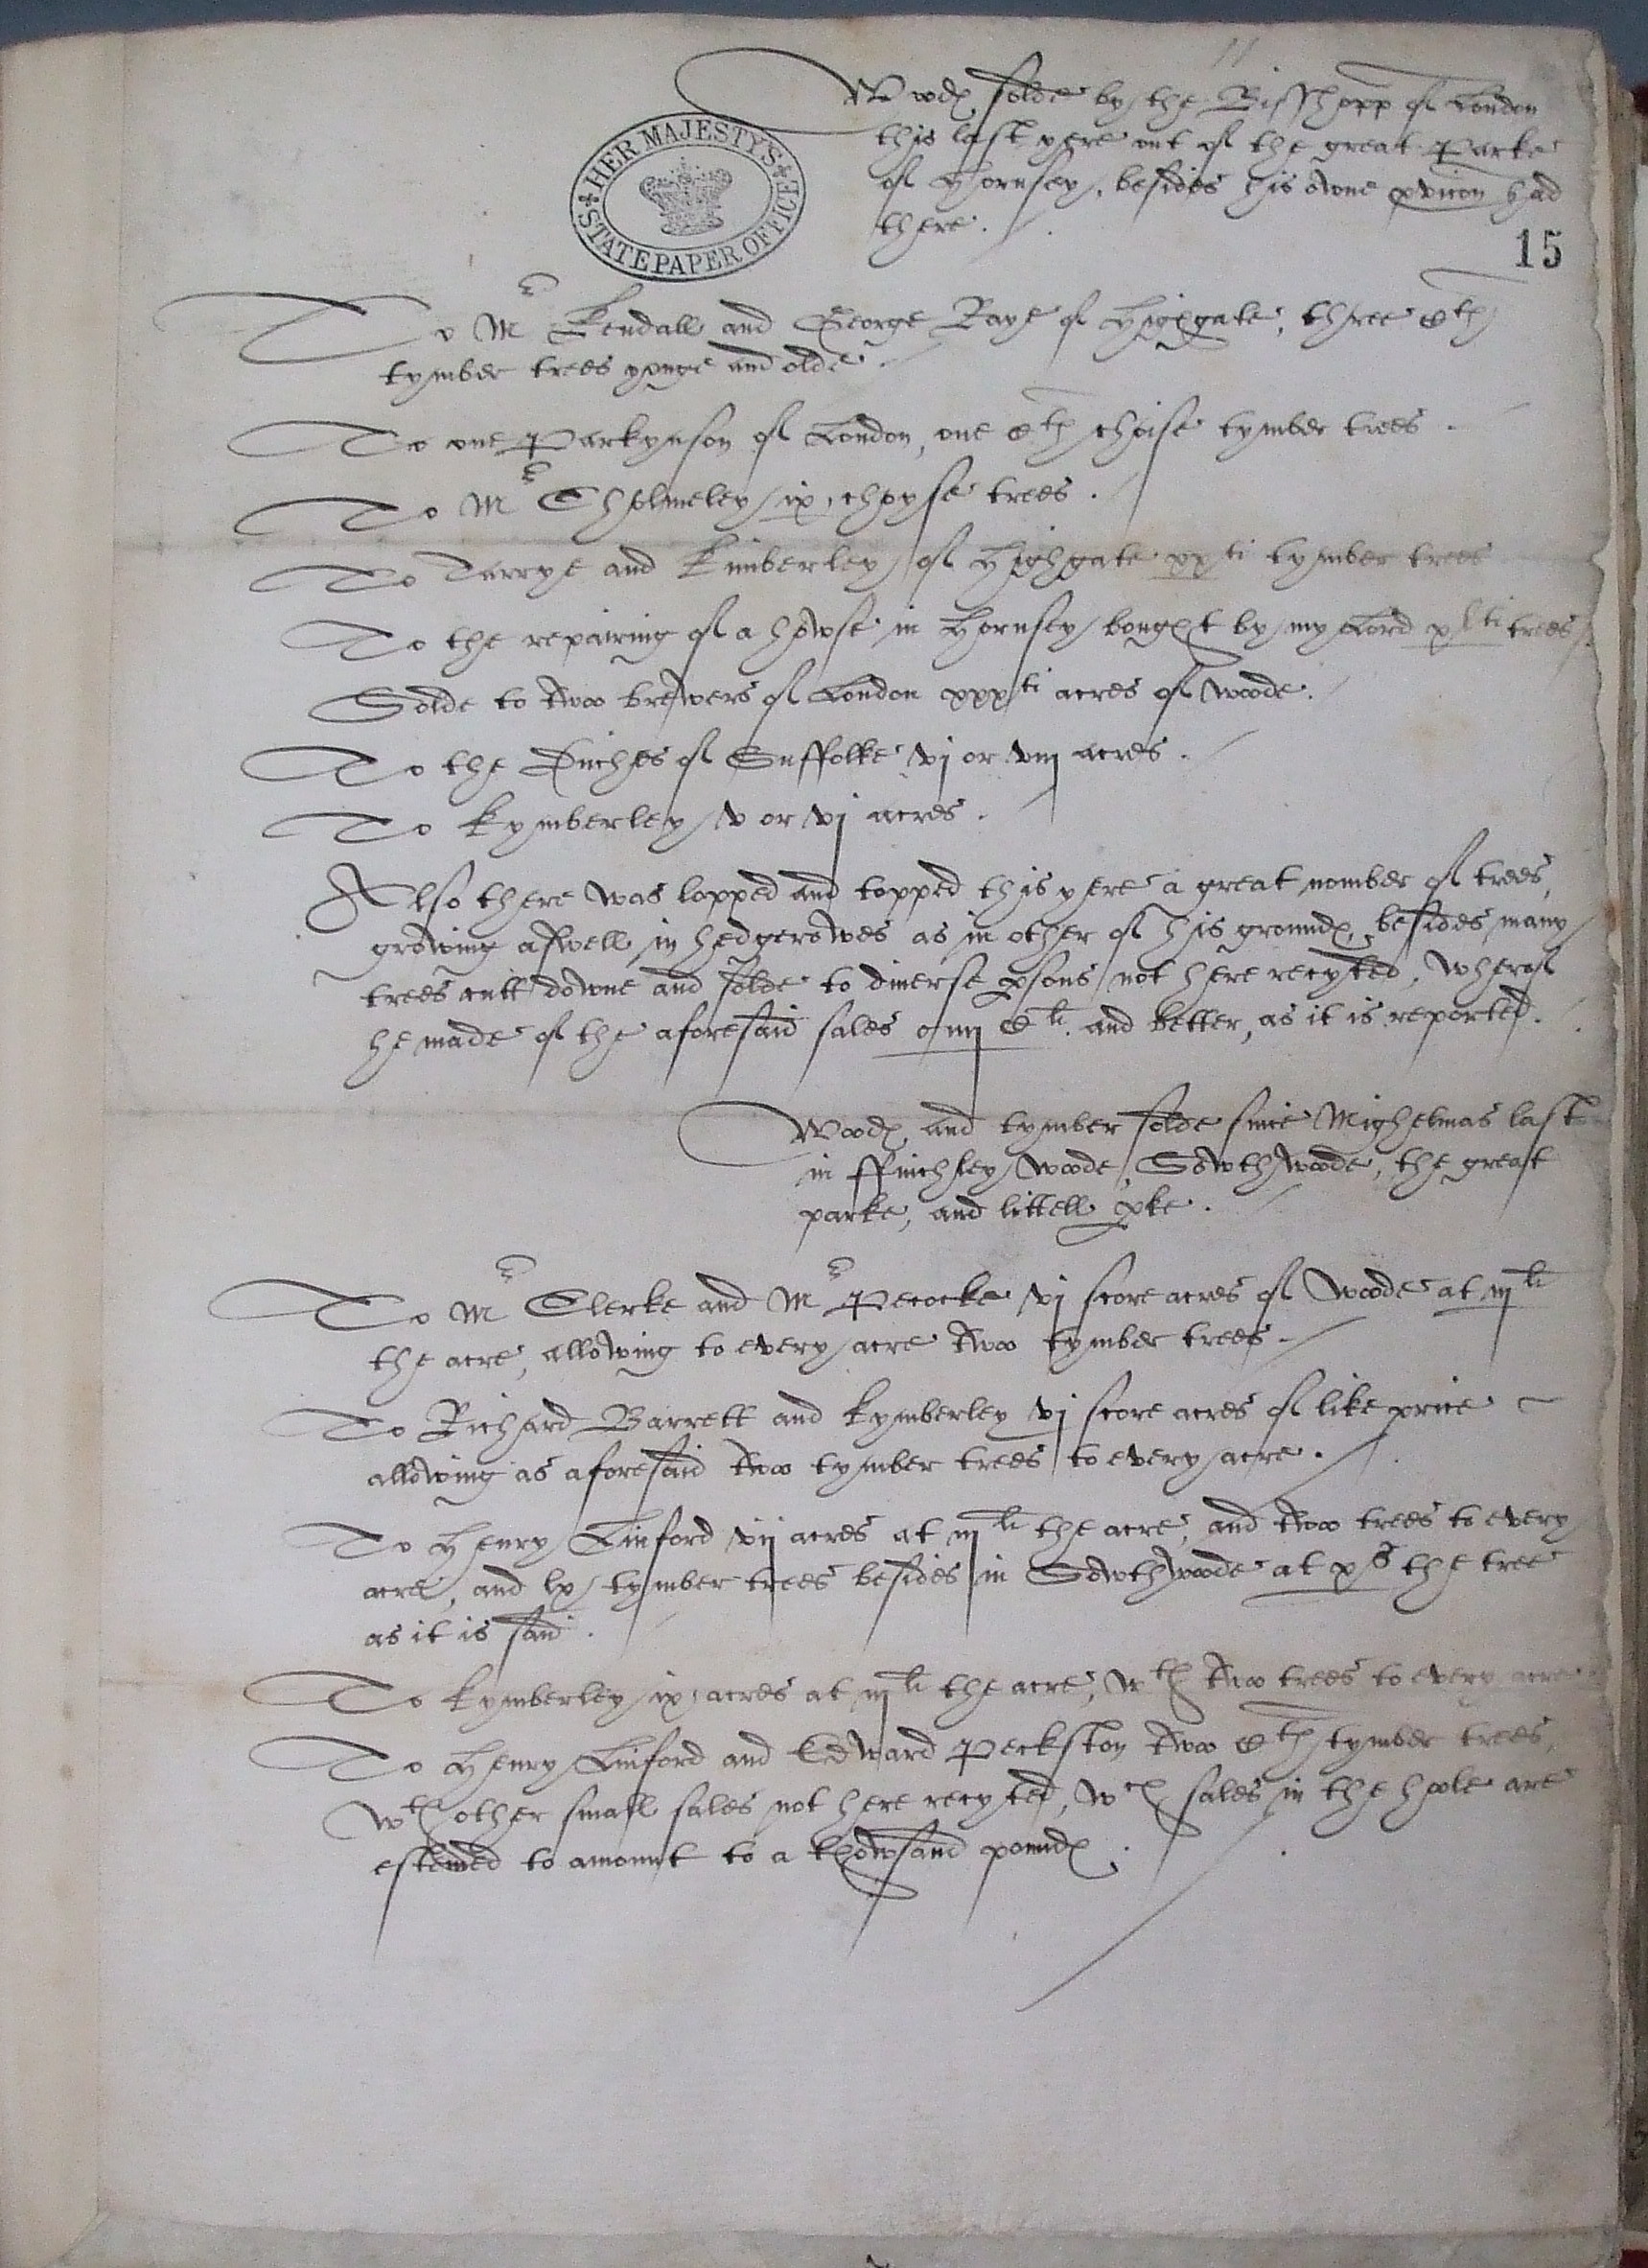 11
Woodes solde by the Bisshopp of London
this last yere out of the great Parke
of Hornsey, besides his owne pvicon had
there.
HER MAJESTY'S STATE PAPER OFFICE
15
To Mr Kendall and George Raye of Highgate, three Cth
tymber trees yonge and olde.
To one Parkynson of London, one Cth choise tymber trees.
To Mr Cholmeley ix choyse trees.
To Tarrye and Kimberley of Highgate xxti tymber trees
To the repairing of a howse in Hornsey bought by my Lord xlti trees.
Solde to twoo brewers of London xxxti acres of woode.
To the Duches of Suffolke vj or viij acres.
To Kymberley v or vj acres.
Also there was lopped and topped this yere a great nomber of trees,
growing aswell in hedgerowes as in other of his groundes, besides many
trees cutt downe and solde to diuerse psons not here recyted, wherof
he made of the aforesaid sales iiij Cli. and better, as it is reported.
Woodes and tymber solde since Mighelmas last
in ffinchley woode, Sowthwoode, the great
parke, and littell pke.
To Mr Clerke and Mr Pecocke vj score acres of woode at iijli
the acre, allowing to every acre twoo tymber trees.
To Richard Barrett and Kymberley vj score acres of like price
allowing as aforesaid twoo tymber trees to every acre.
To Henry Linford vij acres at iijli the acre, and twoo trees to every
acre, and lx tymber trees besides in Sowthwoode at xs the tree
as it is said.
To Kymberley ix acres at iijli the acre, wth twoo trees to every acre
To Henry Linford and Edward Peckston twoo Cth tymber trees,
wth other small sales not here recyted, wch sales in the hoole are
estemed to amount to a thowsand poundes.